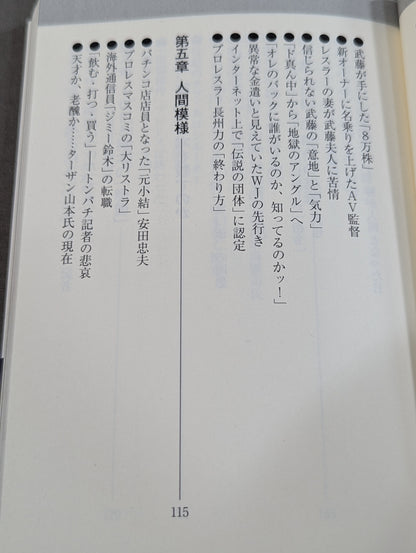 ●武藤が手にした「8万株」
●新オーナーに名乗りを上げたAV監督
●レスラーの妻が武藤夫人に苦情
●信じられない武藤の「意地」と「気力」
●「ド真ん中」から「地獄のアングル」へ
●「オレのバックに誰がいるのか、知ってるのかッ!」
●異常な金遣いと見えていたWJの先行き
●インターネット上で「伝説の団体」に認定
●プロレスラー長州力の「終わり方」
第五章 人間模様 115
●パチンコ店店員となった「元小結」安田忠夫
●プロレスマスコミの「大リストラ」
●海外通信員「ジミー鈴木」の転職
●「飲む・打つ・買う」――トンパチ記者の悲哀
●天才か、老醜か……ターザン山本氏の現在